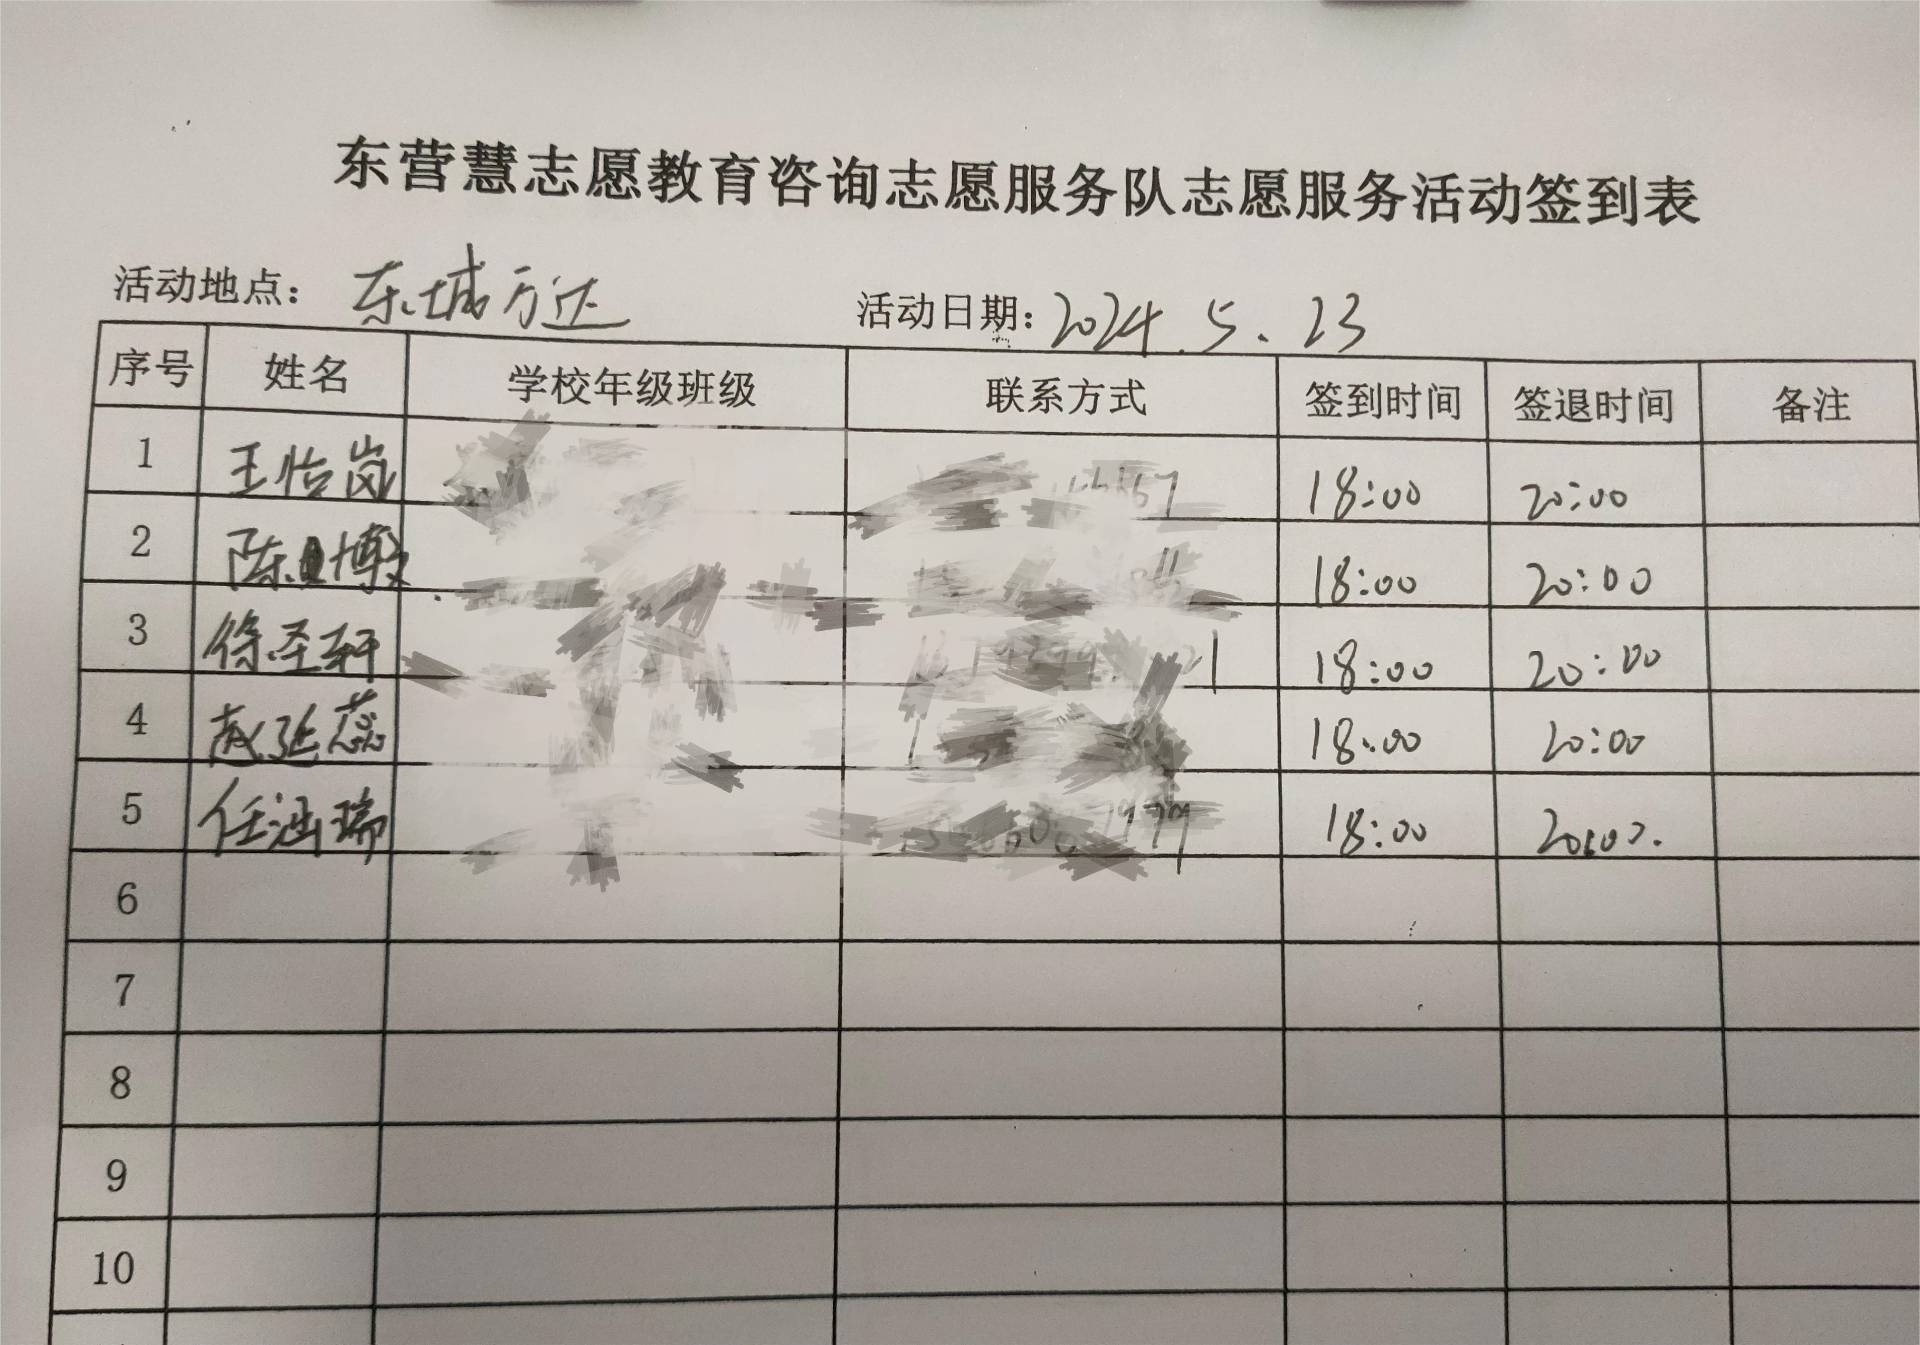 东营慧志愿教育咨询志愿服务队志愿服务活动签到表
活动地点：东城万达 活动日期：2024.5.23
序号 姓名 学校年级班级 联系方式 签到时间 签退时间 备注
1 王怡岚 18:00 20:00
2 陈博 18:00 20:00
3 徐圣轩 18:00 20:00
4 赵延蕊 18:00 20:00
5 任涵瑞 18:00 20:00.
6
7
8
9
10